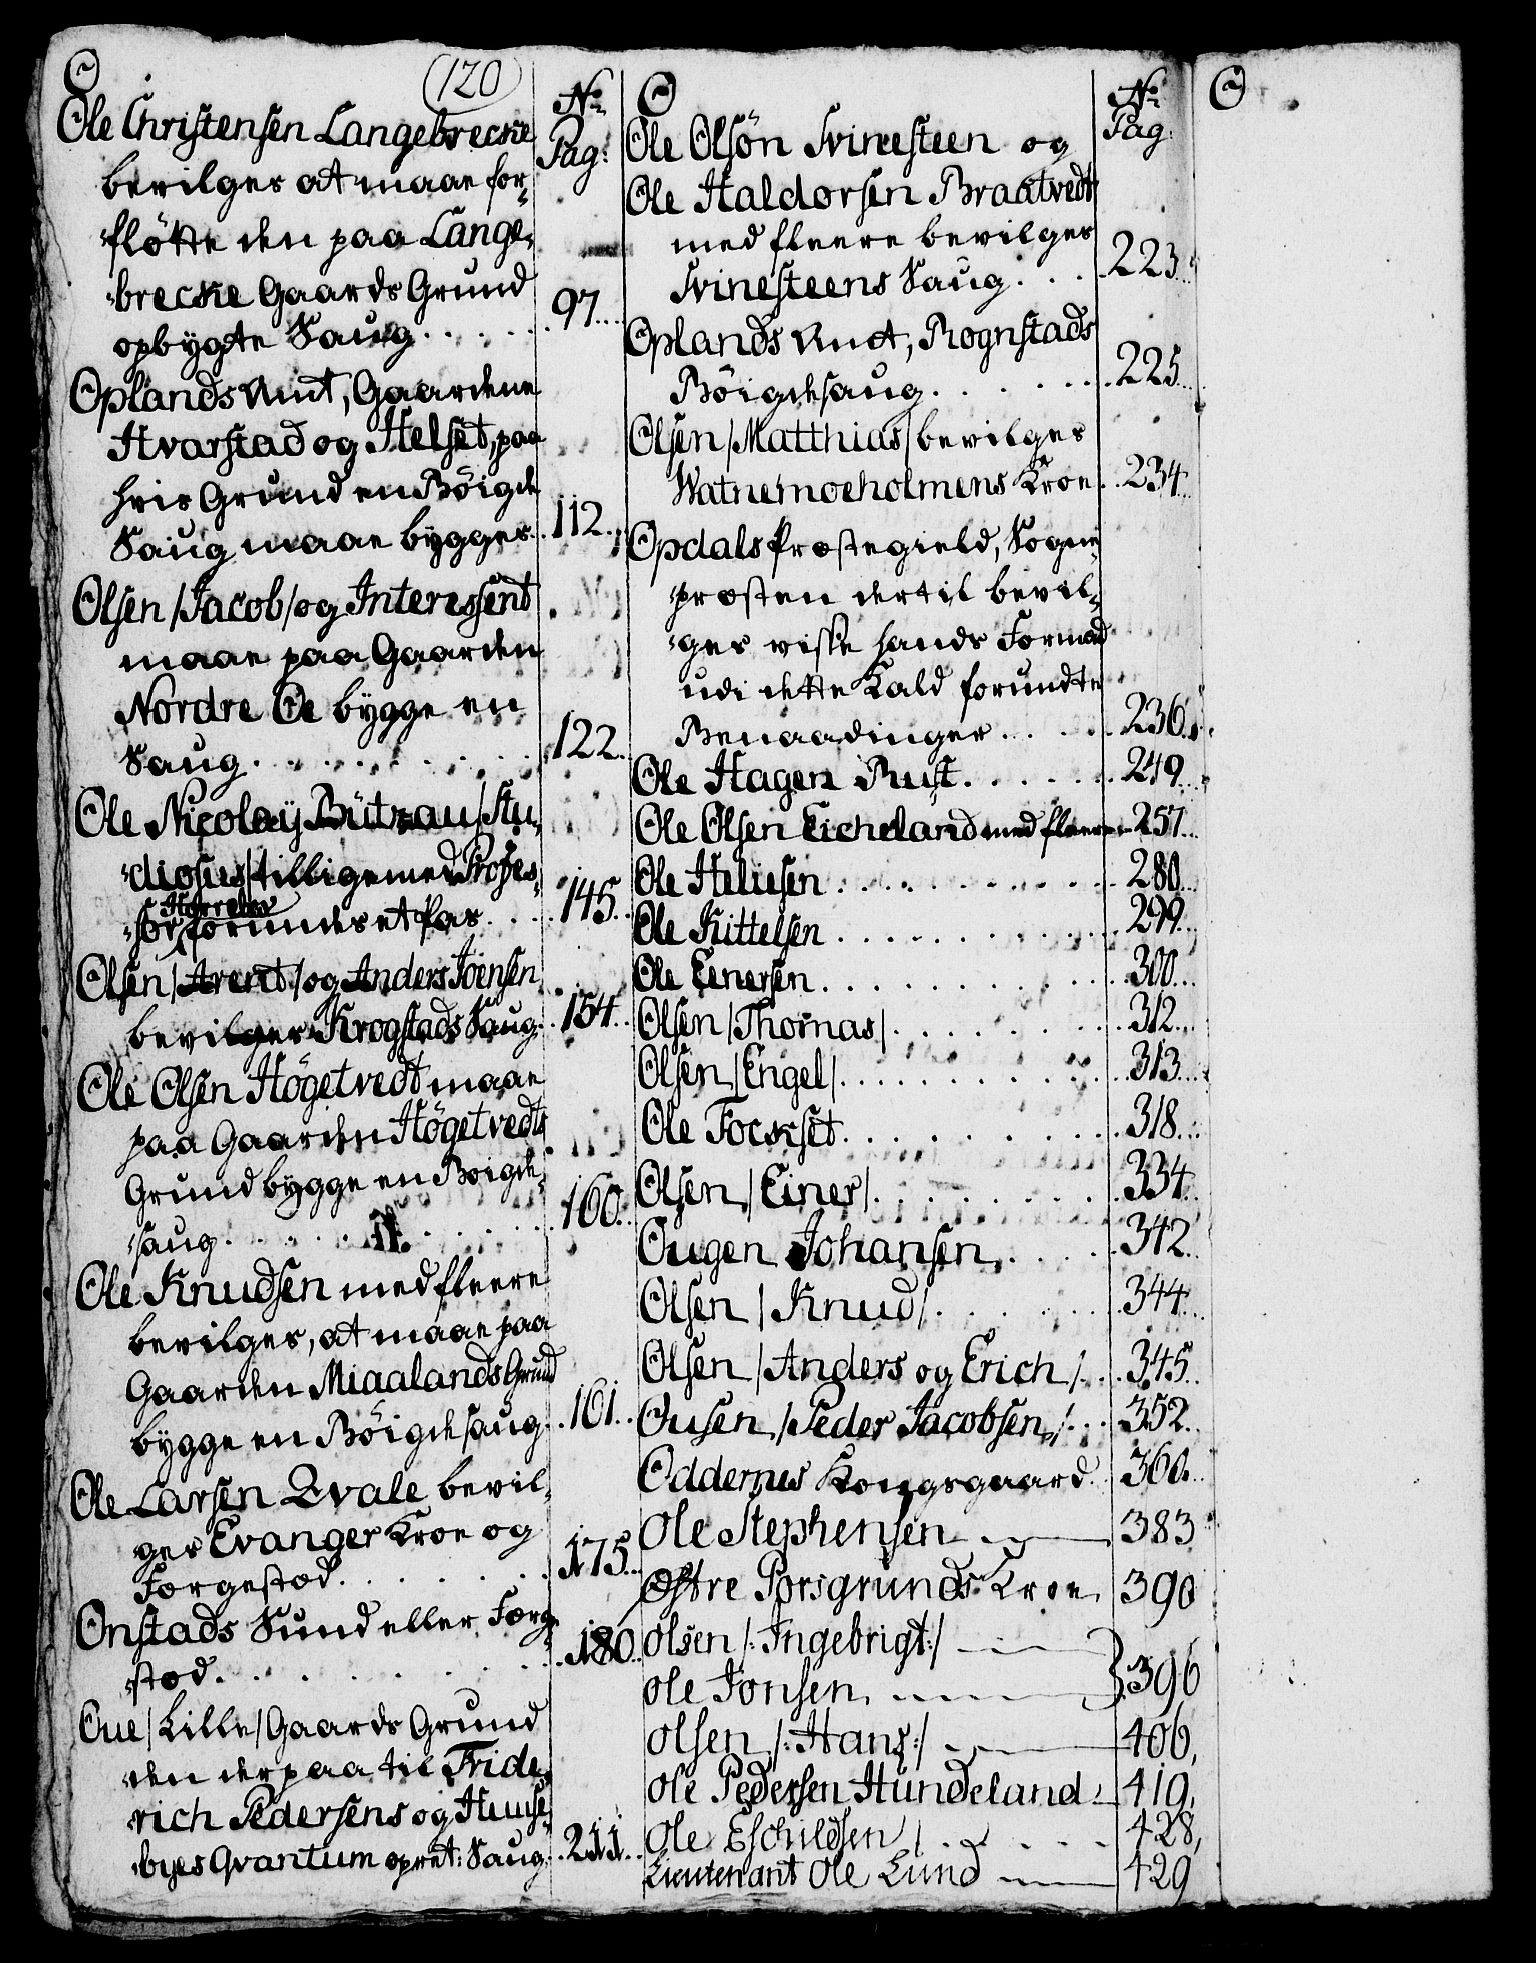 O
120
No
Pag:
Ole Christensen Langebrecke
bevilges at maae for-
fløtte den paa Lange-
brecke Gaards Grund
opbygte Saug . . . . . 97.
Oplands Amt, Gaardene
Hvarstad og Helset, paa
hvis Grund en Böigde
Saug maae bygges . 112.
Olsen /Jacob/ og Interessent
maae paa Gaarden
Nordre Oe bygge en
Saug . . . . . . . . 122.
Ole Nicolaÿ Bützau /Stu-
diosus/ tilligemed Profes-
Horrebov
sor forundes et Pas . . . 145.
Olsen /Arent/ og Anders Joensen
bevilges Krogstads Saug . 154.
Ole Olsen Högetvedt maae
paa Gaarden Högetvedts
Grund bygge en Böigde-
saug . . . . . . . 160.
Ole Knudsen med fleere
bevilges, at maae paa
Gaarden Miaalands Grund
bygge en Böigdesaug . . 161.
Ole Larsen Qvale bevil-
ges Evanger Kroe og
Færgestæd . . . . . . 175.
Onstads Sund eller Færge-
stæd . . . . . . . 180.
Oue /Lille/ Gaards Grund
den derpaa til Fride-
rich Pedersens og Huuse-
byes Qvantum opret: Saug . 211.
O
No
Pag:
Ole Olsön Svinesteen og
Ole Haldorsen Braatvedt
med fleere bevilges
Svinesteens Saug . . . 223.
Oplands Amt, Rognstads
Böigdesaug . . . . . . 225.
Olsen /Matthias/ bevilges
Watnemoeholmens Kroe . 234.
Opdals Præstegield, Sogne-
præsten dertil bevil-
ges visse hands Formænd
udi dette Kald forundte
Benaadinger . . . . . 236.
Ole Hagen Rust . . . . . 249.
Ole Olsen Eicheland med fleere - 257.
Ole Heliesen . . . . . . 280.
Ole Kittelsen . . . . . . 299.
Ole Einersen . . . . . . 300.
Olsen /Thomas/ . . . . . 312.
Olsen /Engel/ . . . . . . 313.
Ole Fockset . . . . . . 318.
Olsen /Einer/ . . . . . . 334.
Ougen Johansen . . . . 342.
Olsen /Knud/ . . . . . 344.
Olsen /Anders og Erich/ . . 345.
Ousen /Peder Jacobsen/ . . 352.
Oddernes Kongsgaard . 360.
Ole Stephensen — 383
Østre Porsgrunds Kroe 390
Olsen /:Ingebrigt:/ —
Ole Jonsen — } 396
Olsen /:Hans:/ — 406,
Ole Pedersen Hundeland - 419,
Ole Eschildsen . . . . . 428,
Lieutenant Ole Lund — 429
O